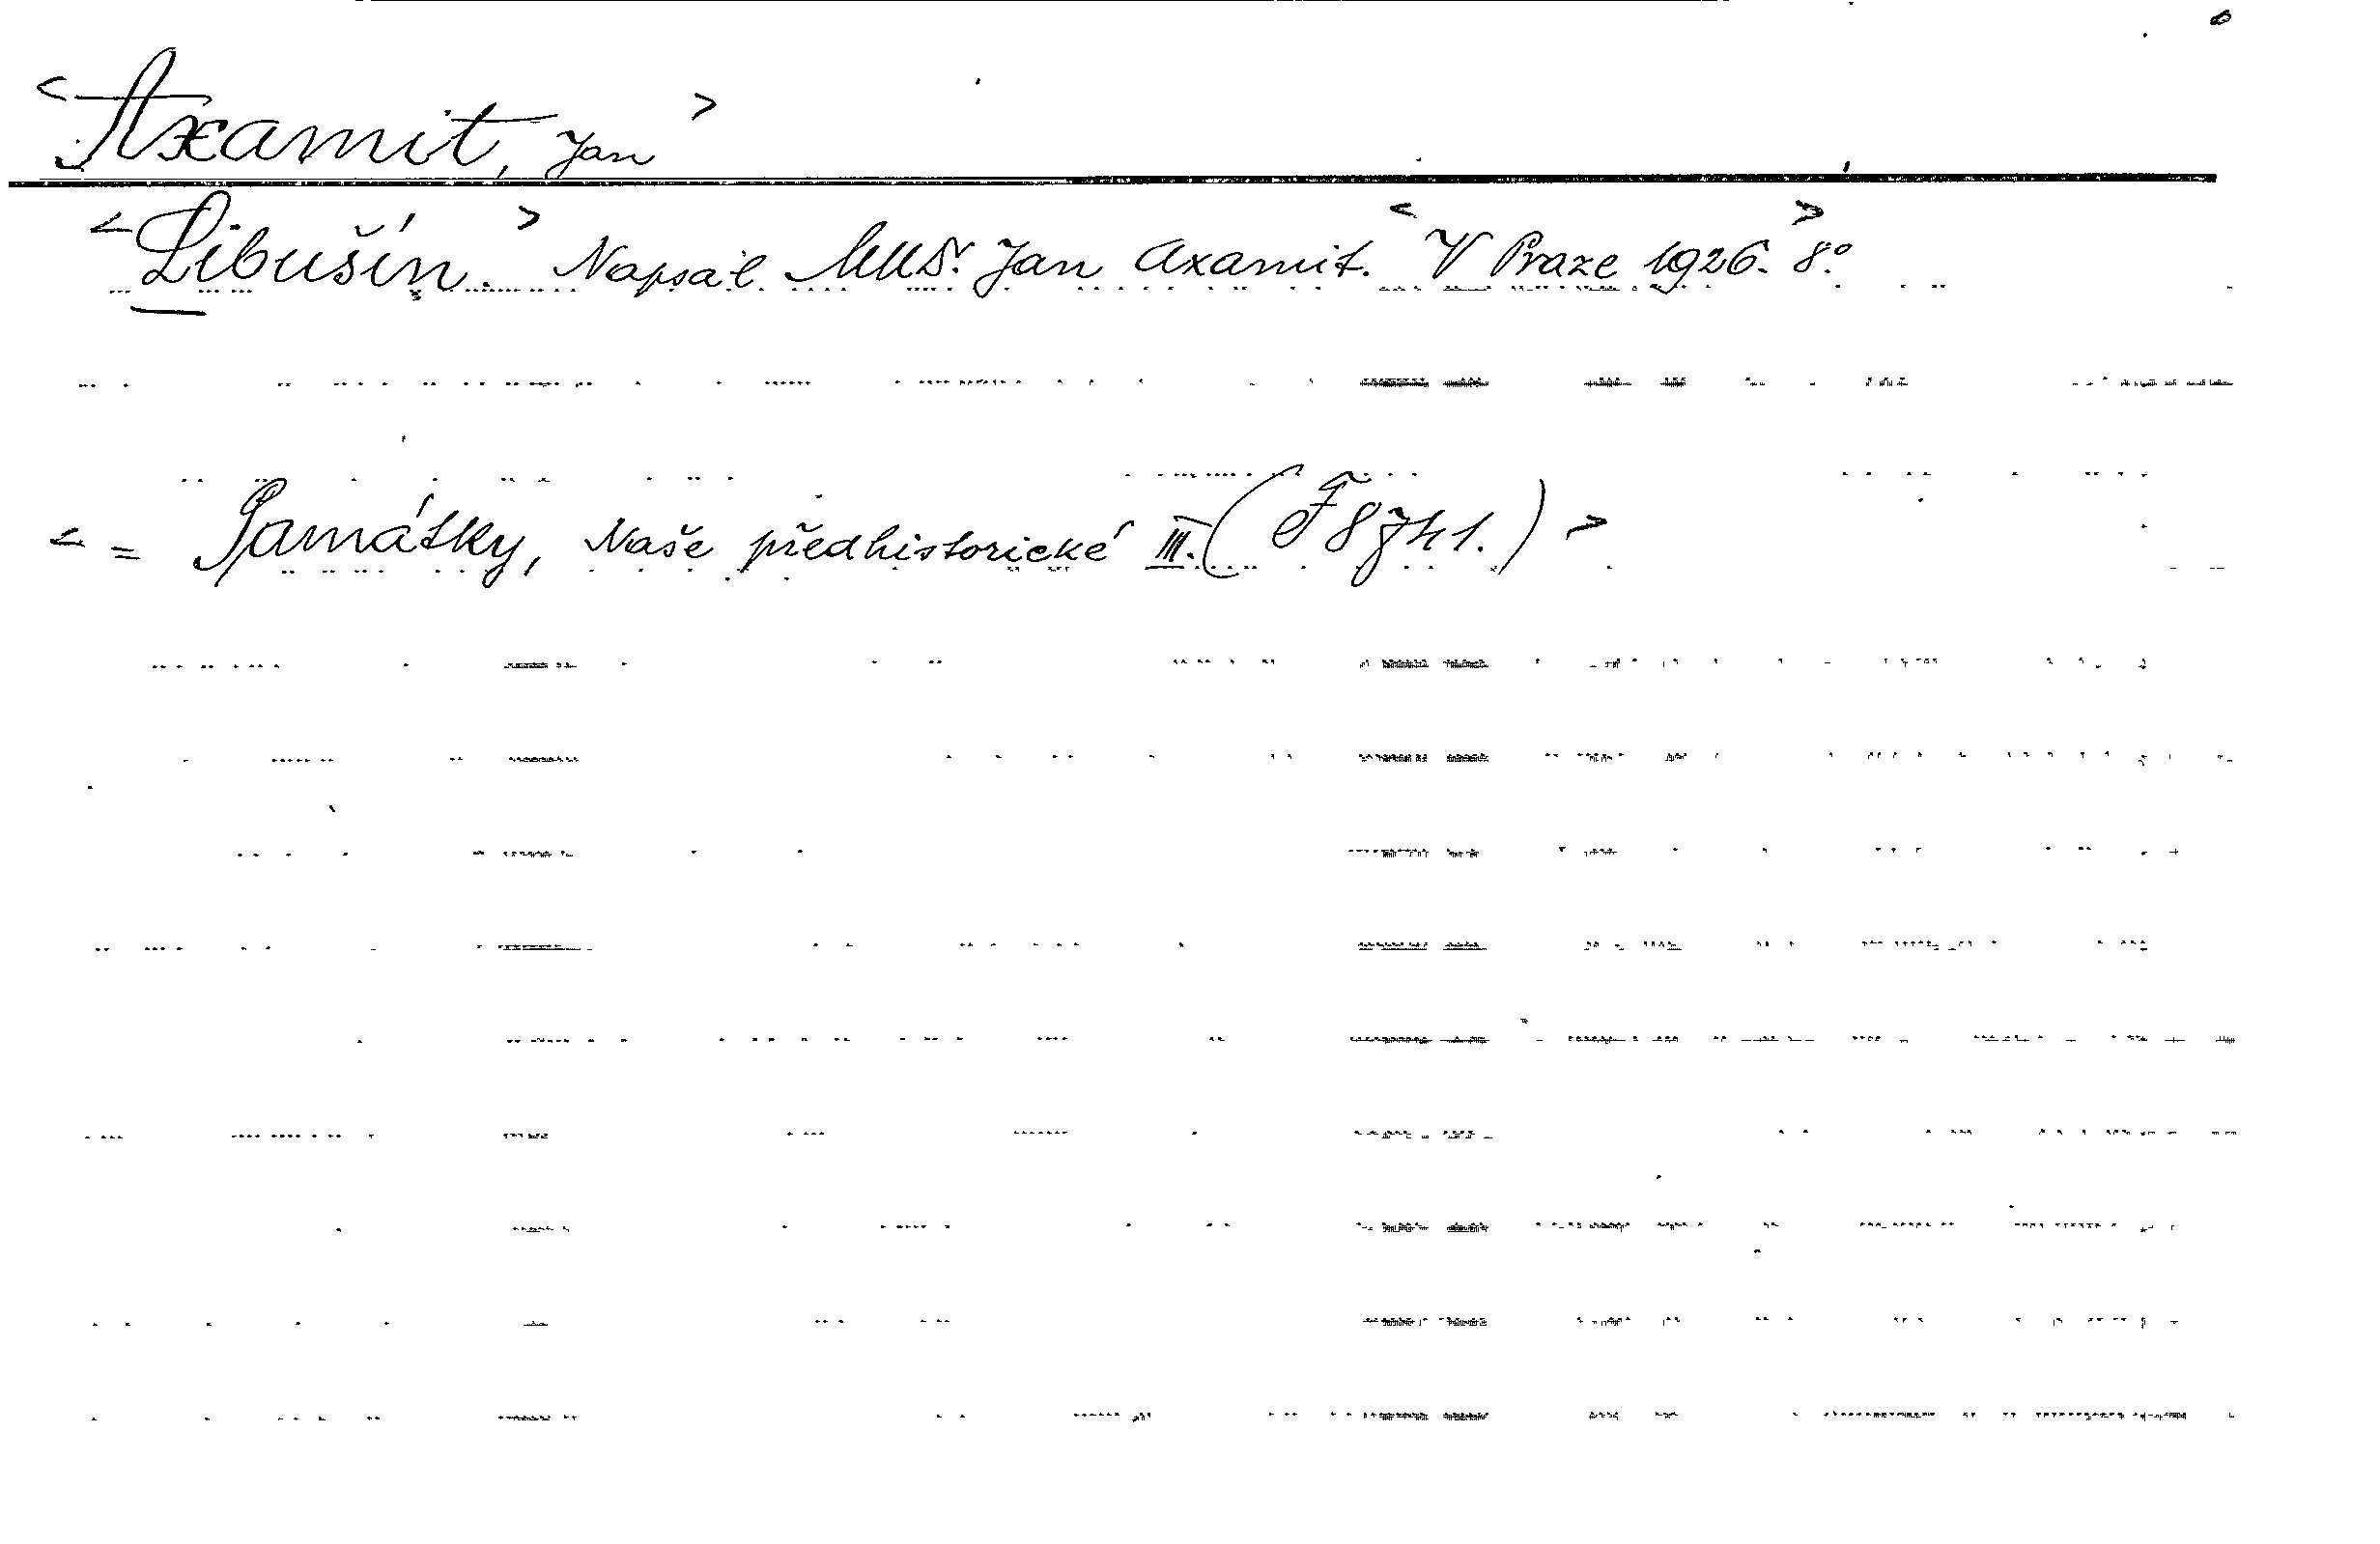 <Axamit, Jan>
<Libušín.> Napsal MUDr. Jan Axamit. <V Praze 1926.> 8.°
<= Památky, Naše předhistorické III. (F 8741.)>